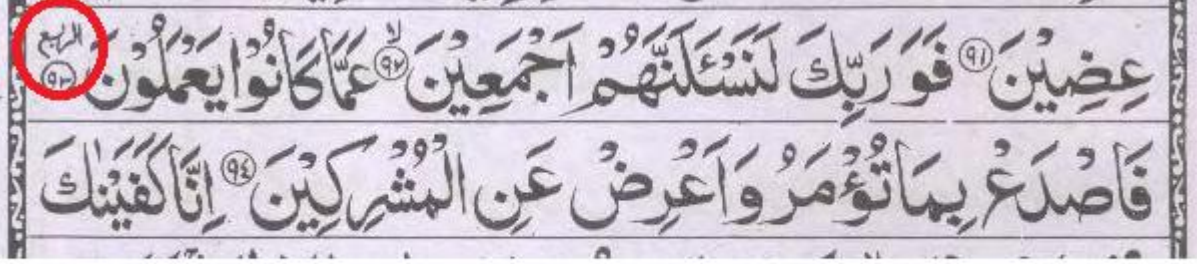 عِضِيْنَ ۹۱ فَوَرَبِّكَ لَنَسْـَٔلَنَّهُمْ اَجْمَعِيْنَ ۙ ۹۲ عَمَّا كَانُوْا يَعْمَلُوْنَ ۹۳ الربع
فَاصْدَعْ بِمَا تُؤْمَرُ وَاَعْرِضْ عَنِ الْمُشْرِكِيْنَ ۹٤ اِنَّا كَفَيْنٰكَ